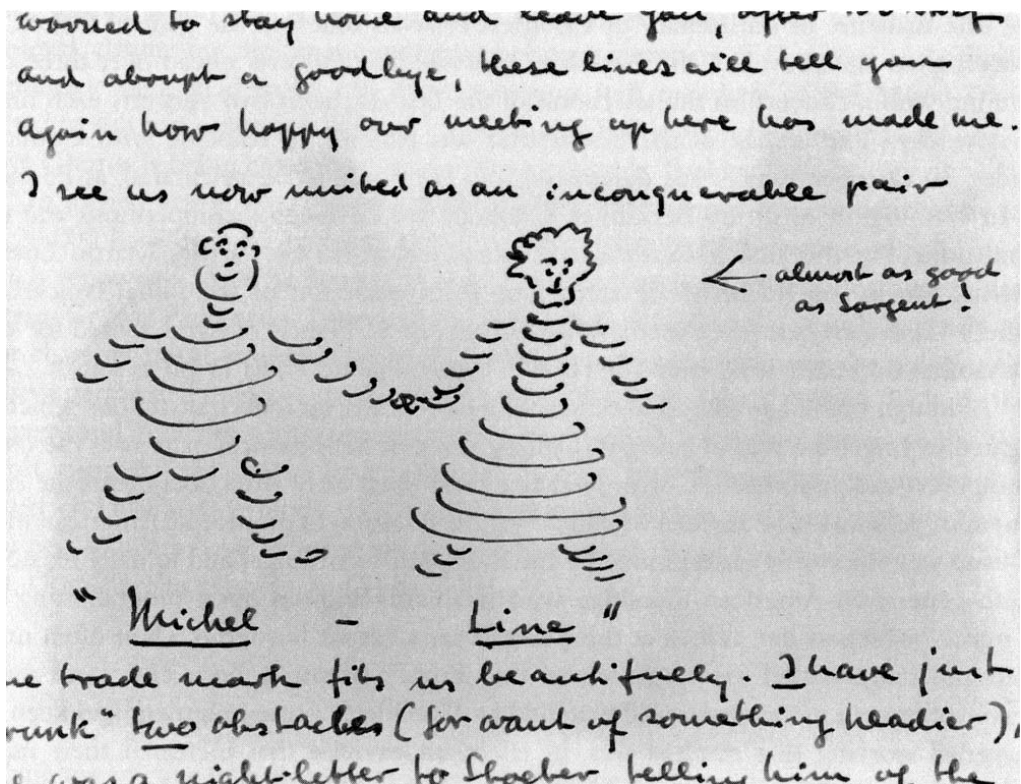 worried to stay home and leave you, after so
and abrupt a goodbye, these lines will tell you
again how happy our meeting up here has made me.
I see us now united as an inconquerable pair
← almost as good
as Sargent!
"Michel - Line"
trade mark fits us beautifully. I have just
two obstacles (for want of something headier),
was a night-letter to Shoeber telling him of the